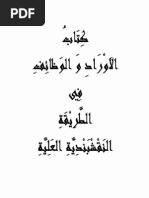 كِتَابُ
الأَوْرَادِ وَ الوَظَائِفِ
فِي
الطَّرِيْقَةِ
النَقْشَبَنْدِيَّةِ العَلِيَّةِ